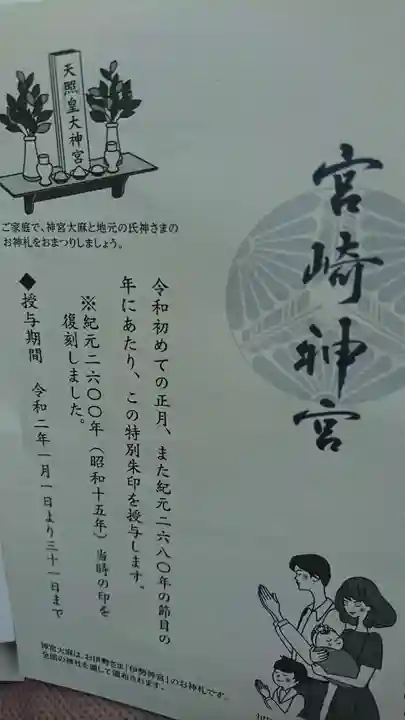 宮崎神宮
天照皇大神宮
ご家庭で、神宮大麻と地元の氏神さまの
お神札をおまつりしましょう。
令和初めての正月、また紀元二六八〇年の節目の
年にあたり、この特別朱印を授与します。
※紀元二六〇〇年(昭和十五年)当時の印を
復刻しました。
◆授与期間 令和二年一月一日より三十一日まで
神宮大麻は、お伊勢さま「伊勢神宮」のお神札です。
全国の神社を通して頒布されます。